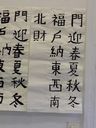 門迎春夏秋冬
福戶納東西南
北財
門迎春夏秋冬